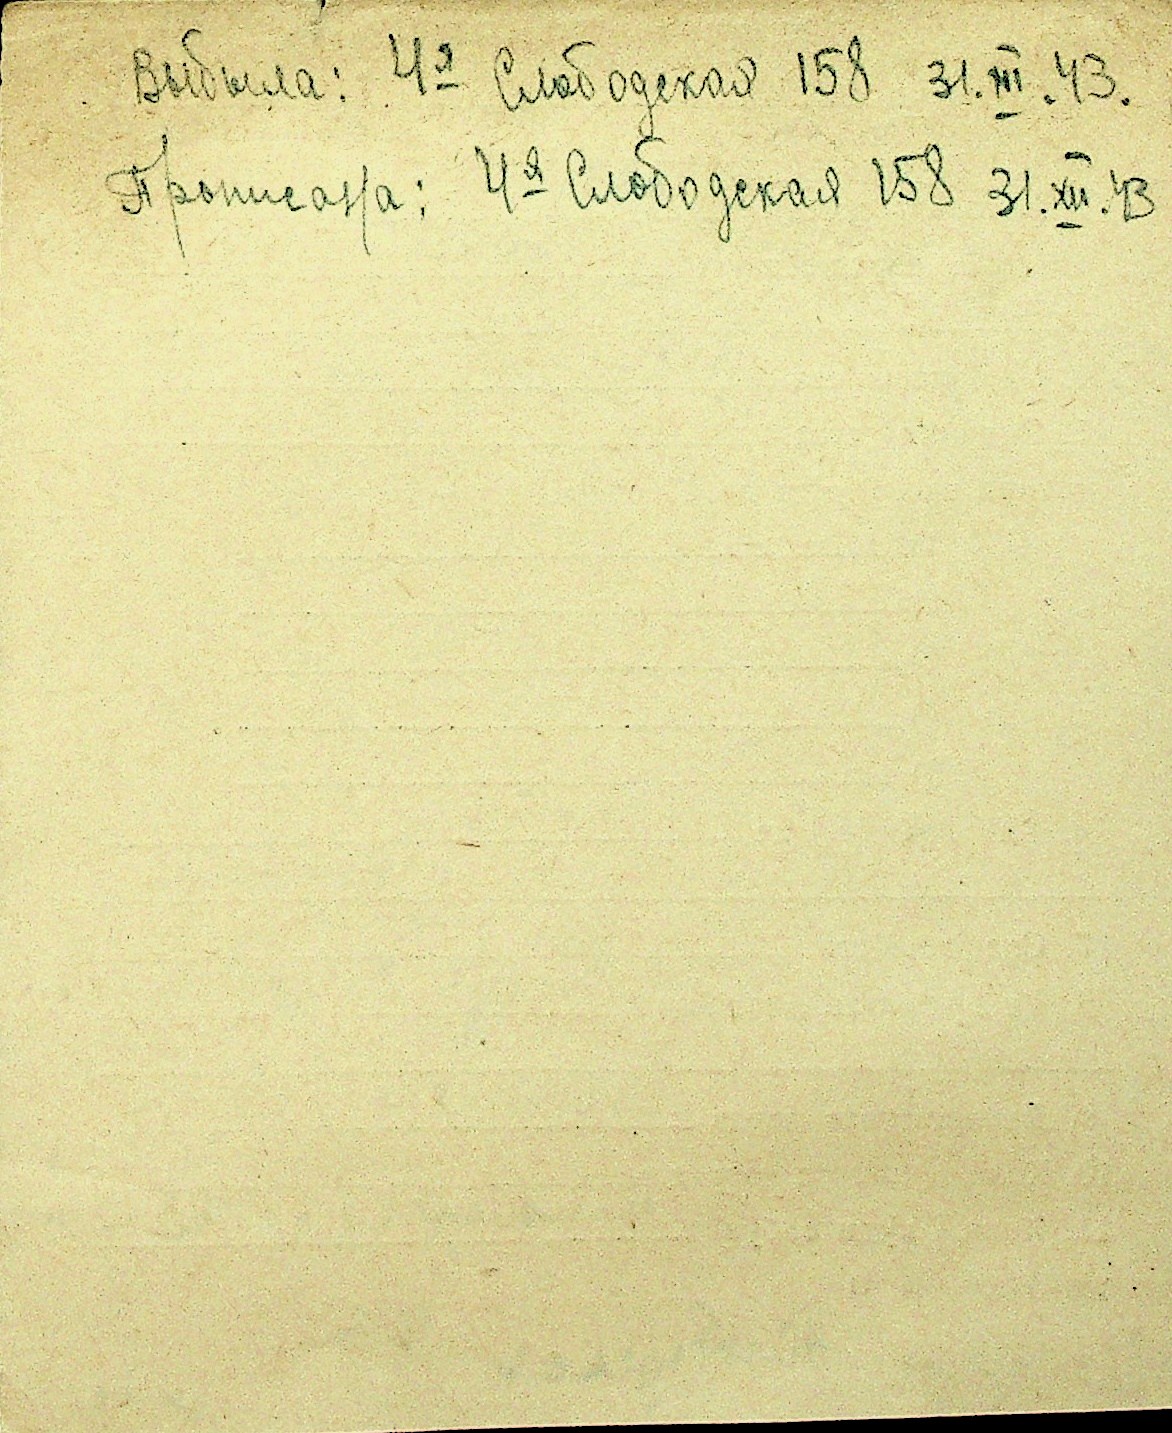 Выбыла: 4я Слободская 158 31.III.43.
Прописана: 4я Слободская 158 31.XII.43